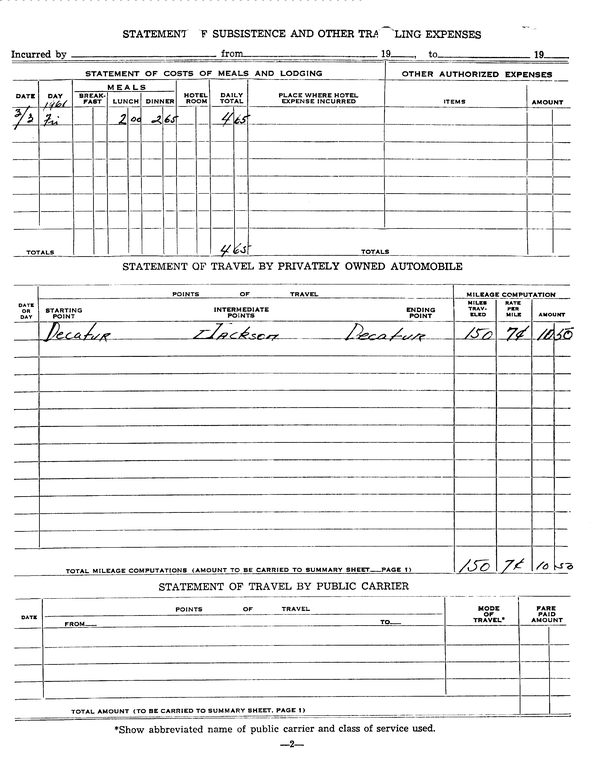 STATEMENT F SUBSISTENCE AND OTHER TRA LING EXPENSES
Incurred by from 19 , to 19
STATEMENT OF COSTS OF MEALS AND LODGING OTHER AUTHORIZED EXPENSES
DATE DAY MEALS BREAK-FAST LUNCH DINNER HOTEL ROOM DAILY TOTAL PLACE WHERE HOTEL EXPENSE INCURRED ITEMS AMOUNT
1961
3/3 Fri 2 00 2 65 4 65
TOTALS 4 65 TOTALS
STATEMENT OF TRAVEL BY PRIVATELY OWNED AUTOMOBILE
DATE OR DAY POINTS OF TRAVEL MILEAGE COMPUTATION
STARTING POINT INTERMEDIATE POINTS ENDING POINT MILES TRAV-ELED RATE PER MILE AMOUNT
Decatur Jackson Decatur 150 7¢ 10 50
TOTAL MILEAGE COMPUTATIONS (AMOUNT TO BE CARRIED TO SUMMARY SHEET—PAGE 1) 150 7¢ 10 50
STATEMENT OF TRAVEL BY PUBLIC CARRIER
DATE POINTS OF TRAVEL MODE OF TRAVEL* FARE PAID AMOUNT
FROM— TO—
TOTAL AMOUNT (TO BE CARRIED TO SUMMARY SHEET, PAGE 1)
*Show abbreviated name of public carrier and class of service used.
—2—